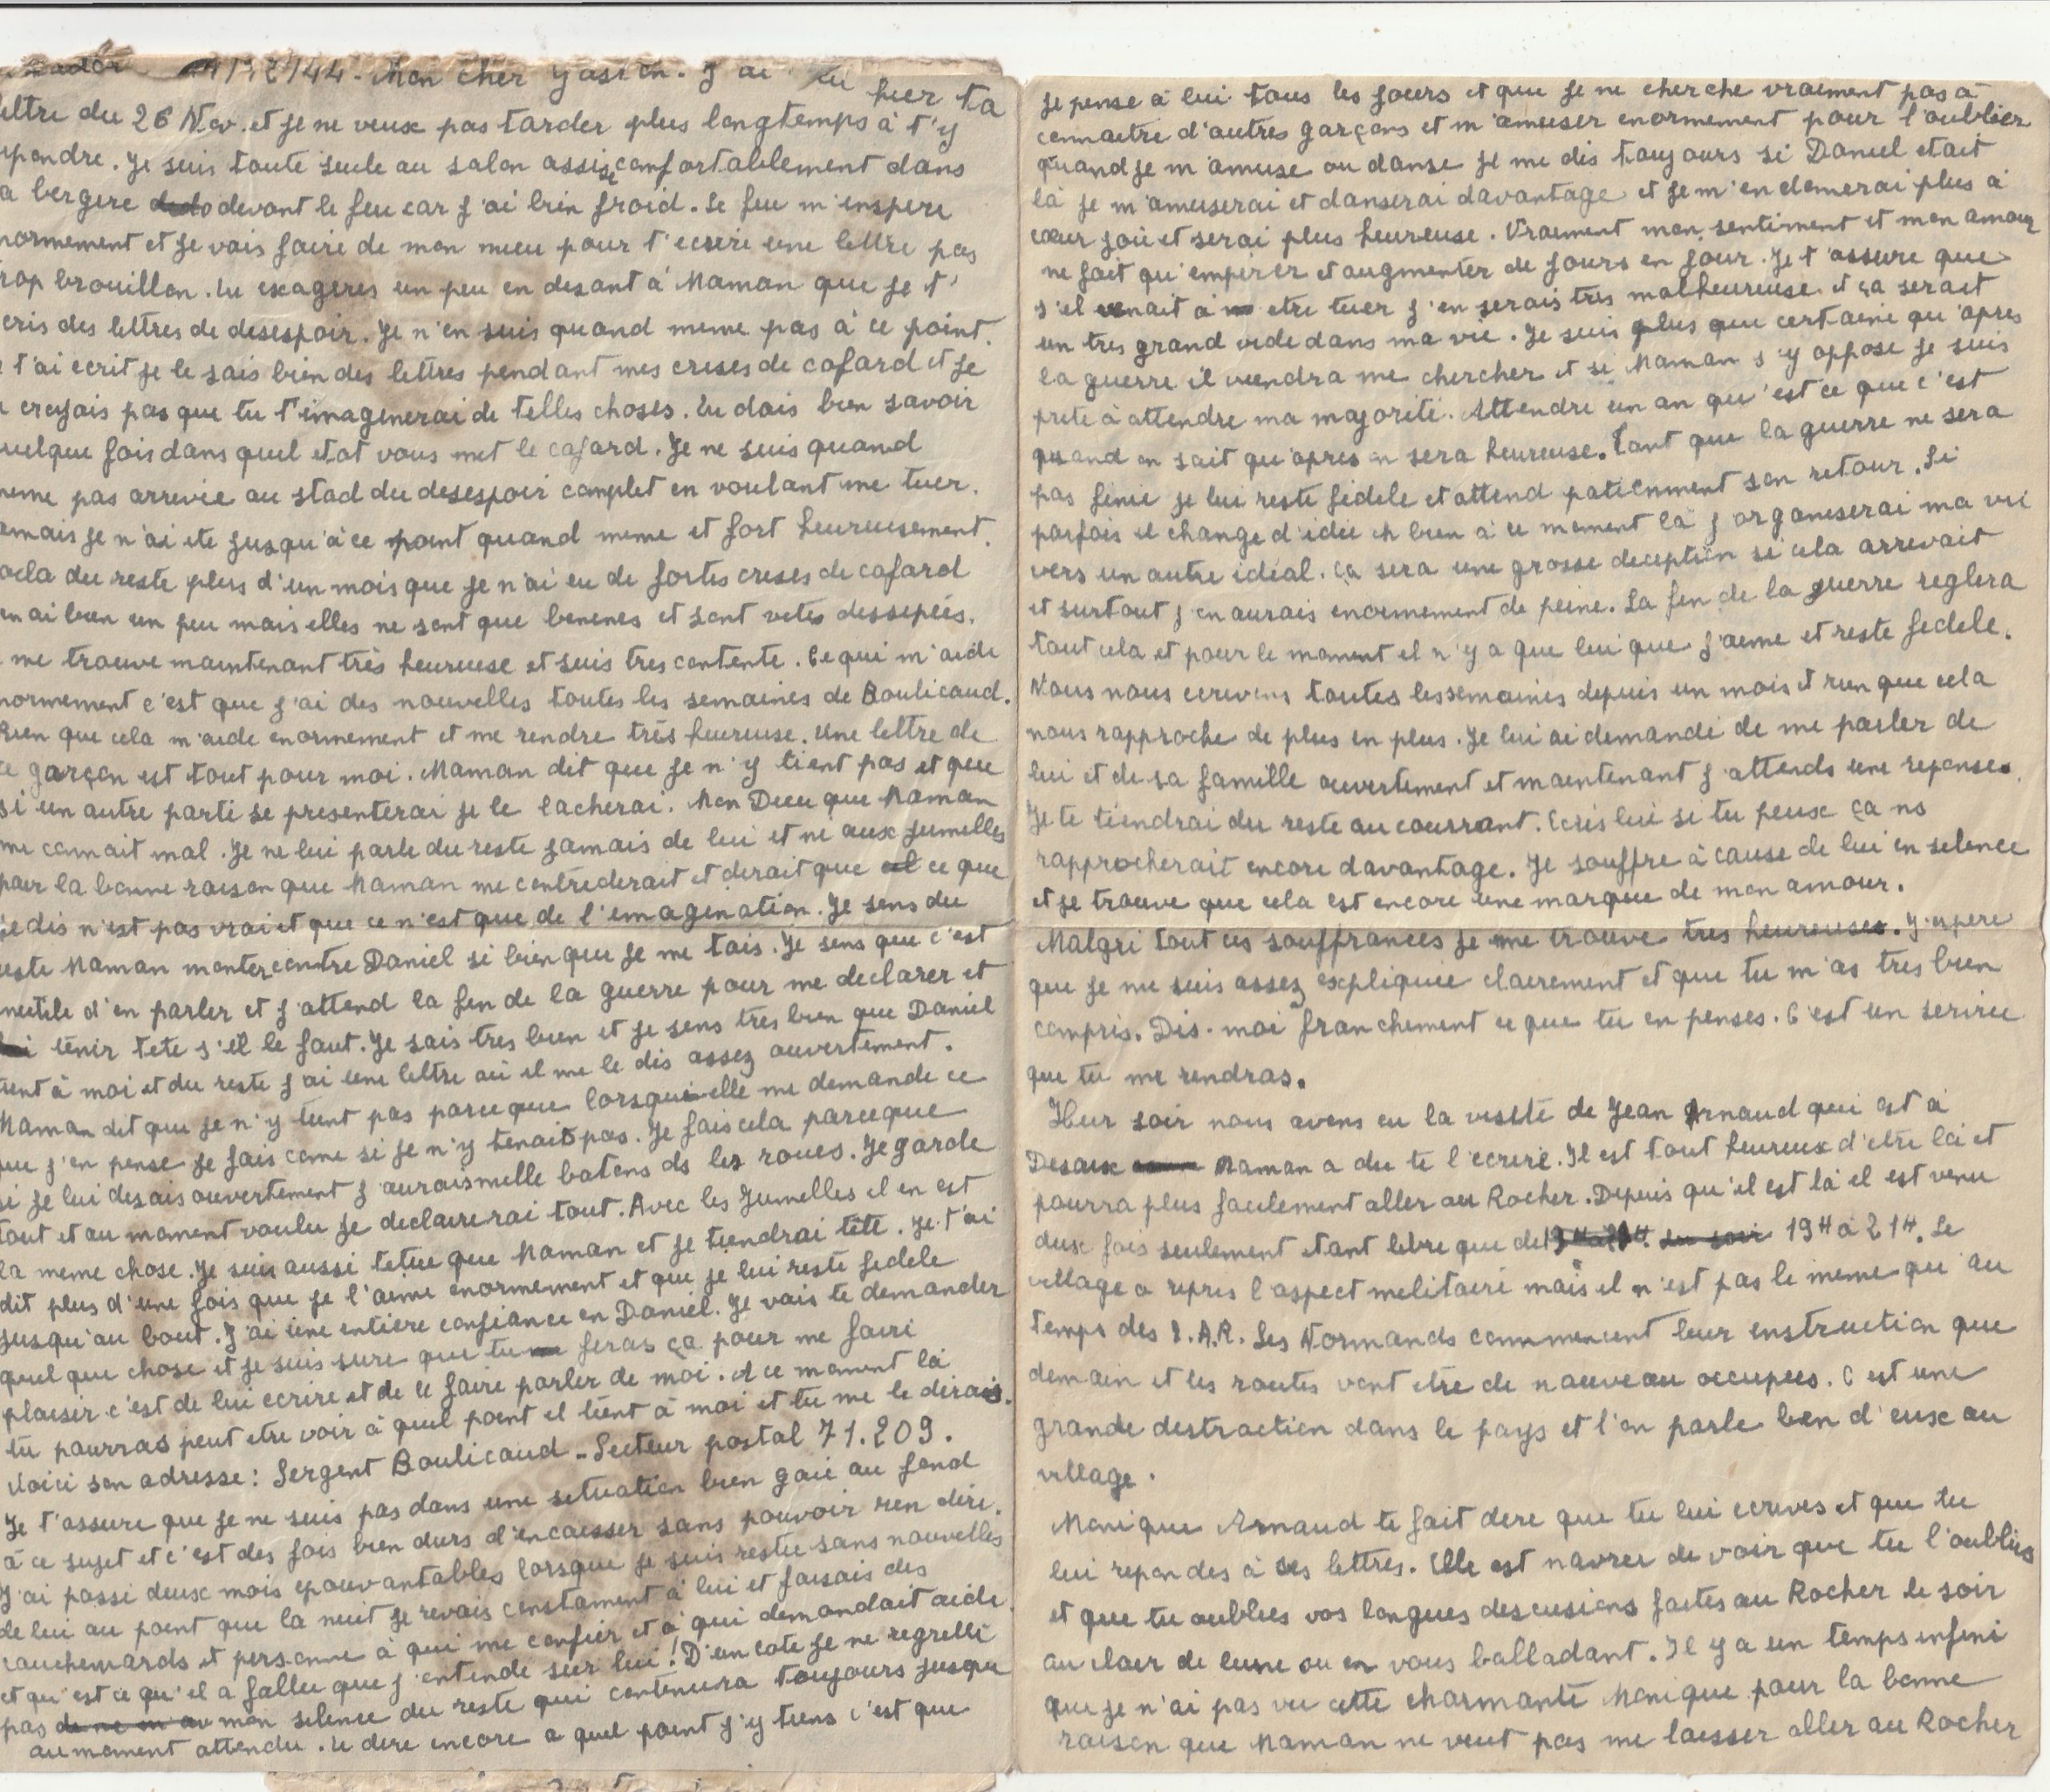 1944. Mon cher Yasin. J'ai eu hier ta
lettre du 26 Nov. et je ne veux pas tarder plus longtemps à t'y
pondre. Je suis toute seule au salon assise confortablement dans
a bergere devant le feu car j'ai brin froid. Le feu m'inspire
normement et je vais faire de mon mieu pour t'ecrire une lettre pas
rop brouillon. Tu exageres un peu en disant à Maman que je t'
cris des lettres de desespoir. Je n'en suis quand meme pas à ce point.
t'ai ecrit je le sais bien des lettres pendant mes crises de cafard et je
croyais pas que tu t'imaginerai de telles choses. Tu dois bien savoir
uelque fois dans quel etat vous met le cafard. Je ne suis quand
meme pas arrivée au stad du desespoir complet en voulant me tuer.
amais je n'ai ete jusqu'à ce point quand meme et fort heureusement.
oila du reste plus d'un mois que je n'ai eu de fortes crises de cafard
en ai bien un peu mais elles ne sont que benines et sont vites dissipées.
me trouve maintenant très heureuse et suis tres contente. Ce qui m'aide
normement c'est que j'ai des nouvelles toutes les semaines de Boulicaud.
Rien que cela m'aide enormement et me rendre très heureuse. Une lettre de
ce garçon est tout pour moi. Maman dit que je n'y tient pas et que
si un autre parti se presenterai je le lacherai. Mon Dieu que Maman
me connait mal. Je ne lui parle du reste jamais de lui et ni aux jumelles
pour la bonne raison que Maman me contrediraît et dirait que ce que
je dis n'est pas vrai et que ce n'est que de l'imagination. Je sens du
reste Maman monter contre Daniel si bien que je me tais. Je sens que c'est
inutile d'en parler et j'attend la fin de la guerre pour me declarer et
lui tenir tete s'il le faut. Je sais tres bien et je sens tres bien que Daniel
tient à moi et du reste j'ai une lettre où il me le dis assez ouvertement.
Maman dit que je n'y tient pas parceque lorsqu'elle me demande ce
que j'en pense je fais come si je n'y tenait pas. Je fais cela parceque
si je lui disais ouvertement j'aurais mille batons ds les roues. Je garde
tout et au moment voulu je declarerai tout. Avec les Jumelles il en est
la meme chose. Je suis aussi tetue que Maman et je tiendrai tête. Je t'ai
dit plus d'une fois que je l'aime enormement et que je lui reste fidele
jusqu'au bout. J'ai une entiere confiance en Daniel. Je vais te demander
quel que chose et je suis sure que tu feras ça pour me faire
plaisir c'est de lui ecrire et de le faire parler de moi. A ce moment là
tu pourras peut etre voir à quel point il tient à moi et tu me le dirais.
Voici son adresse : Sergent Boulicaud - Secteur postal 71.209.
Je t'assure que je ne suis pas dans une situation bien gaie au fond
à ce sujet et c'est des fois bien durs d'encaisser sans pouvoir rien dire.
J'ai passé deux mois epouvantables lorsque je suis restée sans nouvelles
de lui au point que la nuit je revais constament à lui et faisais des
cauchemards et personne à qui me confier et à qui demandait aide
et qu'est ce qu'il a fallu que j'entende sur lui ! D'un coté je ne regrette
pas mon silence du reste qui continura toujours jusqu
au moment attendu. Te dire encore a quel point j'y tiens c'est que
je pense à lui tous les jours et que je ne cherche vraiment pas à
connaitre d'autres garçons et m'amuser enormement pour l'oublier
quand je m'amuse ou danse je me dis toujours si Daniel etait
là je m'amuserai et danserai davantage et je m'en donerai plus à
cœur joie et serai plus heureuse. Vraiment mon sentiment et mon amour
ne fait qu'empirer et augmenter de jours en jour. Je t'assure que
s'il venait à etre tuer j'en serais tres malheureuse et ça serait
un tres grand vide dans ma vie. Je suis plus que certaine qu'apres
la guerre il viendra me chercher et si Maman s'y oppose je suis
prete à attendre ma majorité. Attendre un an qu'est ce que c'est
quand on sait qu'apres on sera heureuse. Tant que la guerre ne sera
pas finie je lui reste fidele et attend patiemment son retour. Si
parfois il change d'idée eh bien à ce moment là j'organiserai ma vie
vers un autre ideal. Ça sera une grosse deception si cela arrivait
et surtout j'en aurais enormement de peine. La fin de la guerre reglera
tout cela et pour le moment il n'y a que lui que j'aime et reste fidele.
Nous nous ecrivons toutes les semaines depuis un mois et rien que cela
nous rapproche de plus en plus. Je lui ai demandé de me parler de
lui et de sa famille ouvertement et maintenant j'attends une reponse.
Je te tiendrai du reste au courrant. Ecris lui si tu peux ça ns
rapprocherait encore davantage. Je souffre à cause de lui en silence
et je trouve que cela est encore une marque de mon amour.
Malgré tout ces souffrances je me trouve tres heureuse. J'espere
que je me suis assez expliquée clairement et que tu m'as tres bien
compris. Dis-moi franchement ce que tu en penses. C'est un service
que tu me rendras.
Hier soir nous avons eu la visite de Jean Arnaud qui est à
Desaix Maman a du te l'ecrire. Il est tout heureux d'etre là et
pourra plus facilement aller au Rocher. Depuis qu'il est là il est venu
deux fois seulement etant libre que de 19H à 21H. Le
village a repris l'aspect militaire mais il n'est pas le meme qu'au
temps des I.A.R. Les Normands commencent leur instruction que
demain et les routes vont etre de nouveau occupées. C'est une
grande distraction dans le pays et l'on parle bien d'eux au
village.
Monique Arnaud te fait dire que tu lui ecrives et que tu
lui repondes à ses lettres. Elle est navrer de voir que tu l'oublies
et que tu oublies vos longues descusions faites au Rocher le soir
au clair de lune ou en vous balladant. Il y a un temps infini
que je n'ai pas vu cette charmante Monique pour la bonne
raison que Maman ne veut pas me laisser aller au Rocher